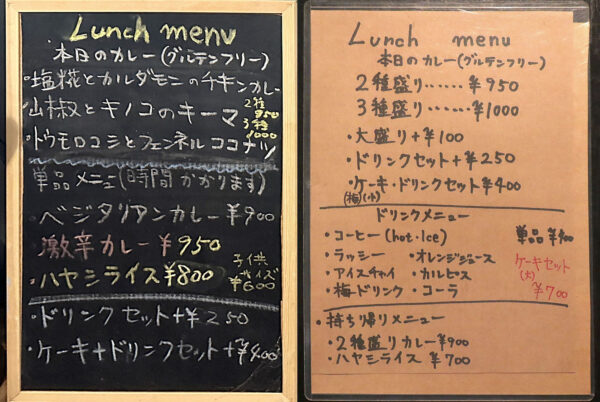 Lunch menu
本日のカレー(グルテンフリー)
・塩糀とカルダモンのチキンカレー
山椒とキノコのキーマ
2種
950
3種
1000
・トウモロコシとフェンネルココナツ
単品メニュー(時間かかります)
・ベジタリアンカレー¥900
激辛カレー¥950
・ハヤシライス¥800
子供
サイズ
¥600
・ドリンクセット+¥250
・ケーキ+ドリンクセット+¥400
Lunch menu
本日のカレー(グルテンフリー)
2種盛り……¥950
3種盛り……¥1000
・大盛り+¥100
・ドリンクセット+¥250
・ケーキ・ドリンクセット¥400
(梅)(小)
ドリンクメニュー
・コーヒー(hot・Ice) 単品¥400
・ラッシー ・オレンジジュース
・アイスチャイ ・カルピス
・梅ドリンク ・コーラ
ケーキセット
(大)
¥700
・持ち帰りメニュー
・2種盛りカレー¥900
・ハヤシライス ¥700